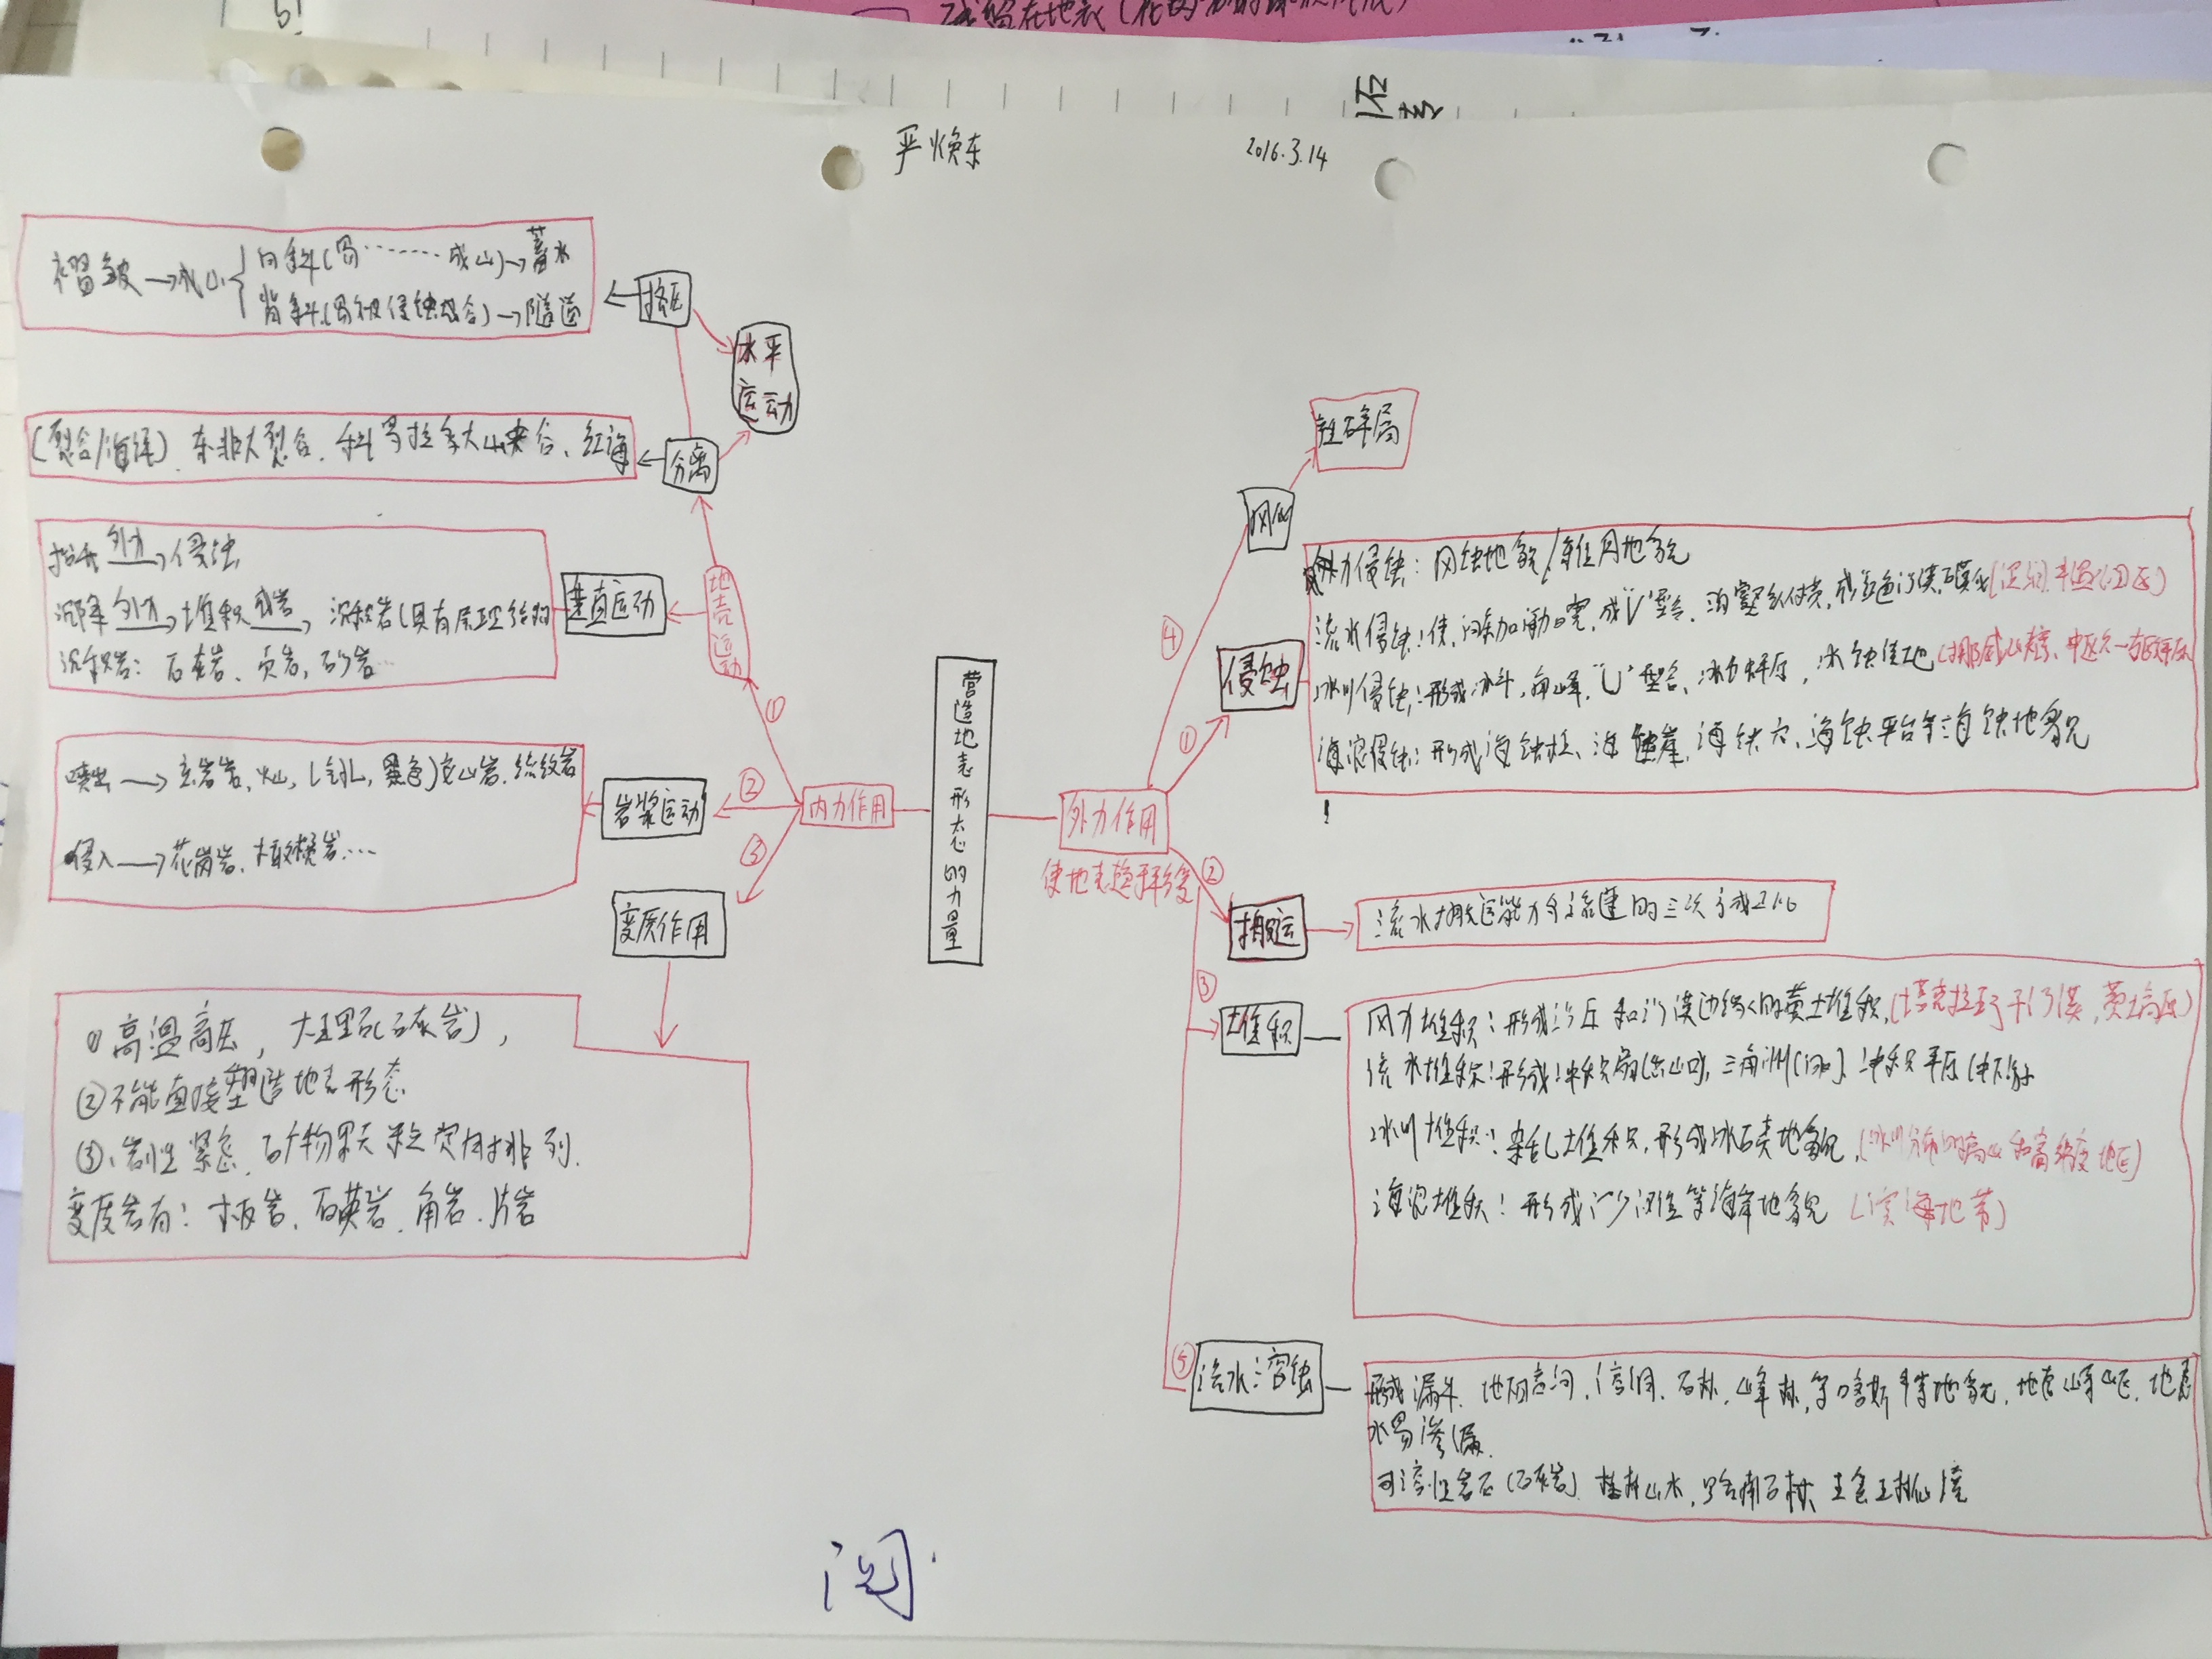 严焕东
2016.3.14
褶皱→成山
向斜(易……成山)→蓄水
背斜(易被侵蚀成谷)→隧道
挤压
水平
运动
(裂谷/海洋)、东非大裂谷、科罗拉多大峡谷、红海
分离
抬升 外力→侵蚀
沉降 外力→堆积 成岩→沉积岩(具有层理结构
沉积岩:石灰岩、页岩,砂岩…
垂直运动
地壳运动
①
喷出→玄岩岩,火山,(气孔,黑色)安山岩.流纹岩
侵入→花岗岩.橄榄岩…
岩浆运动
②
内力作用
③
变质作用
①高温高压,大理石(石灰岩),
②不能直接塑造地表形态
③、岩性紧密,矿物颗粒定向排列.
变质岩有:板岩.石英岩.角岩.片岩
营造地表形态的力量
外力作用
使地表趋于平缓
④
风化
①
侵蚀
外力侵蚀:风蚀地貌/雅丹地貌
流水侵蚀:使
成"V"型谷,沟壑纵横,
冰川侵蚀:形成冰斗,角峰,"U"型谷、冰蚀平原,冰蚀洼地
海浪侵蚀:形成海蚀柱、海蚀崖,海蚀穴、海蚀平台等海蚀地貌
②
搬运
流水搬运能力与流速的三次方成正比
③
堆积
风力堆积:形成沙丘和沙漠边缘的黄土堆积,(塔克拉玛干沙漠,黄土高原)
流水堆积:形成冲积扇(出山口),三角洲(河口),冲积平原(中下游
冰川堆积:杂乱堆积,形成冰碛地貌,(冰川分布的高山和高纬度地区)
海浪堆积:形成沙滩等海岸地貌(滨海地带)
⑤
流水溶蚀
形成漏斗、地下暗河,溶洞、石林,峰林,等喀斯特等地貌,地表崎岖,地表
水易渗漏.
可溶性岩石(石灰岩).桂林山水,路南石林
阅